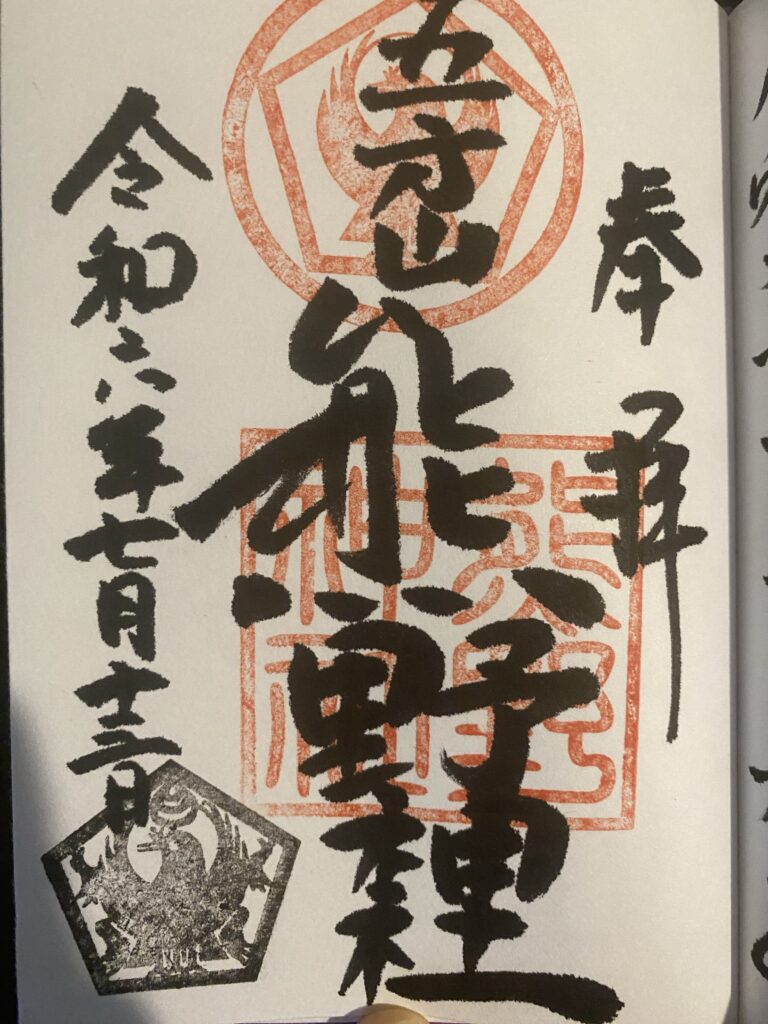 奉拝
五方山
熊野神社
熊野
神社
令和六年七月十三日